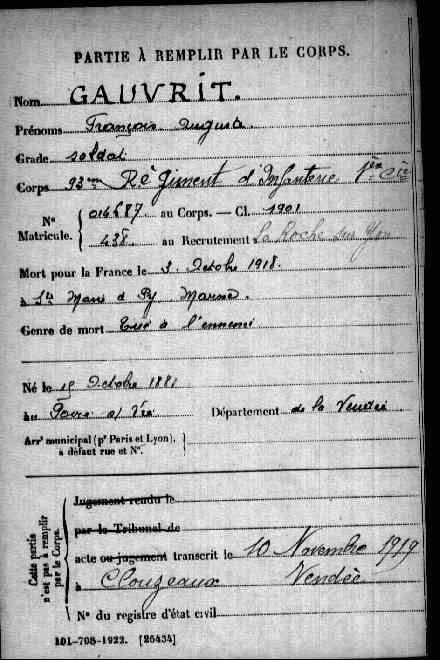 PARTIE À REMPLIR PAR LE CORPS.
Nom GAUVRIT.
Prénoms François Auguste.
Grade soldat
Corps 93me Régiment d'Infanterie 1ère Cie
Nº Matricule. 016687 au Corps. — Cl. 1901
438 au Recrutement La Roche sur Yon
Mort pour la France le 3 Octobre 1918.
à Ste Marie à Py Marne.
Genre de mort Tué à l'ennemi
Né le 15 Octobre 1881
à Poiré s/ Vie Département de la Vendée.
Arrt municipal (pr Paris et Lyon),
à défaut rue et Nº.
Cette partie n'est pas à remplir par le Corps.
Jugement rendu le
par le Tribunal de
acte ou jugement transcrit le 10 Novembre 1919
à Clouzeaux Vendée
Nº du registre d'état civil
101-708-1922. [26434]